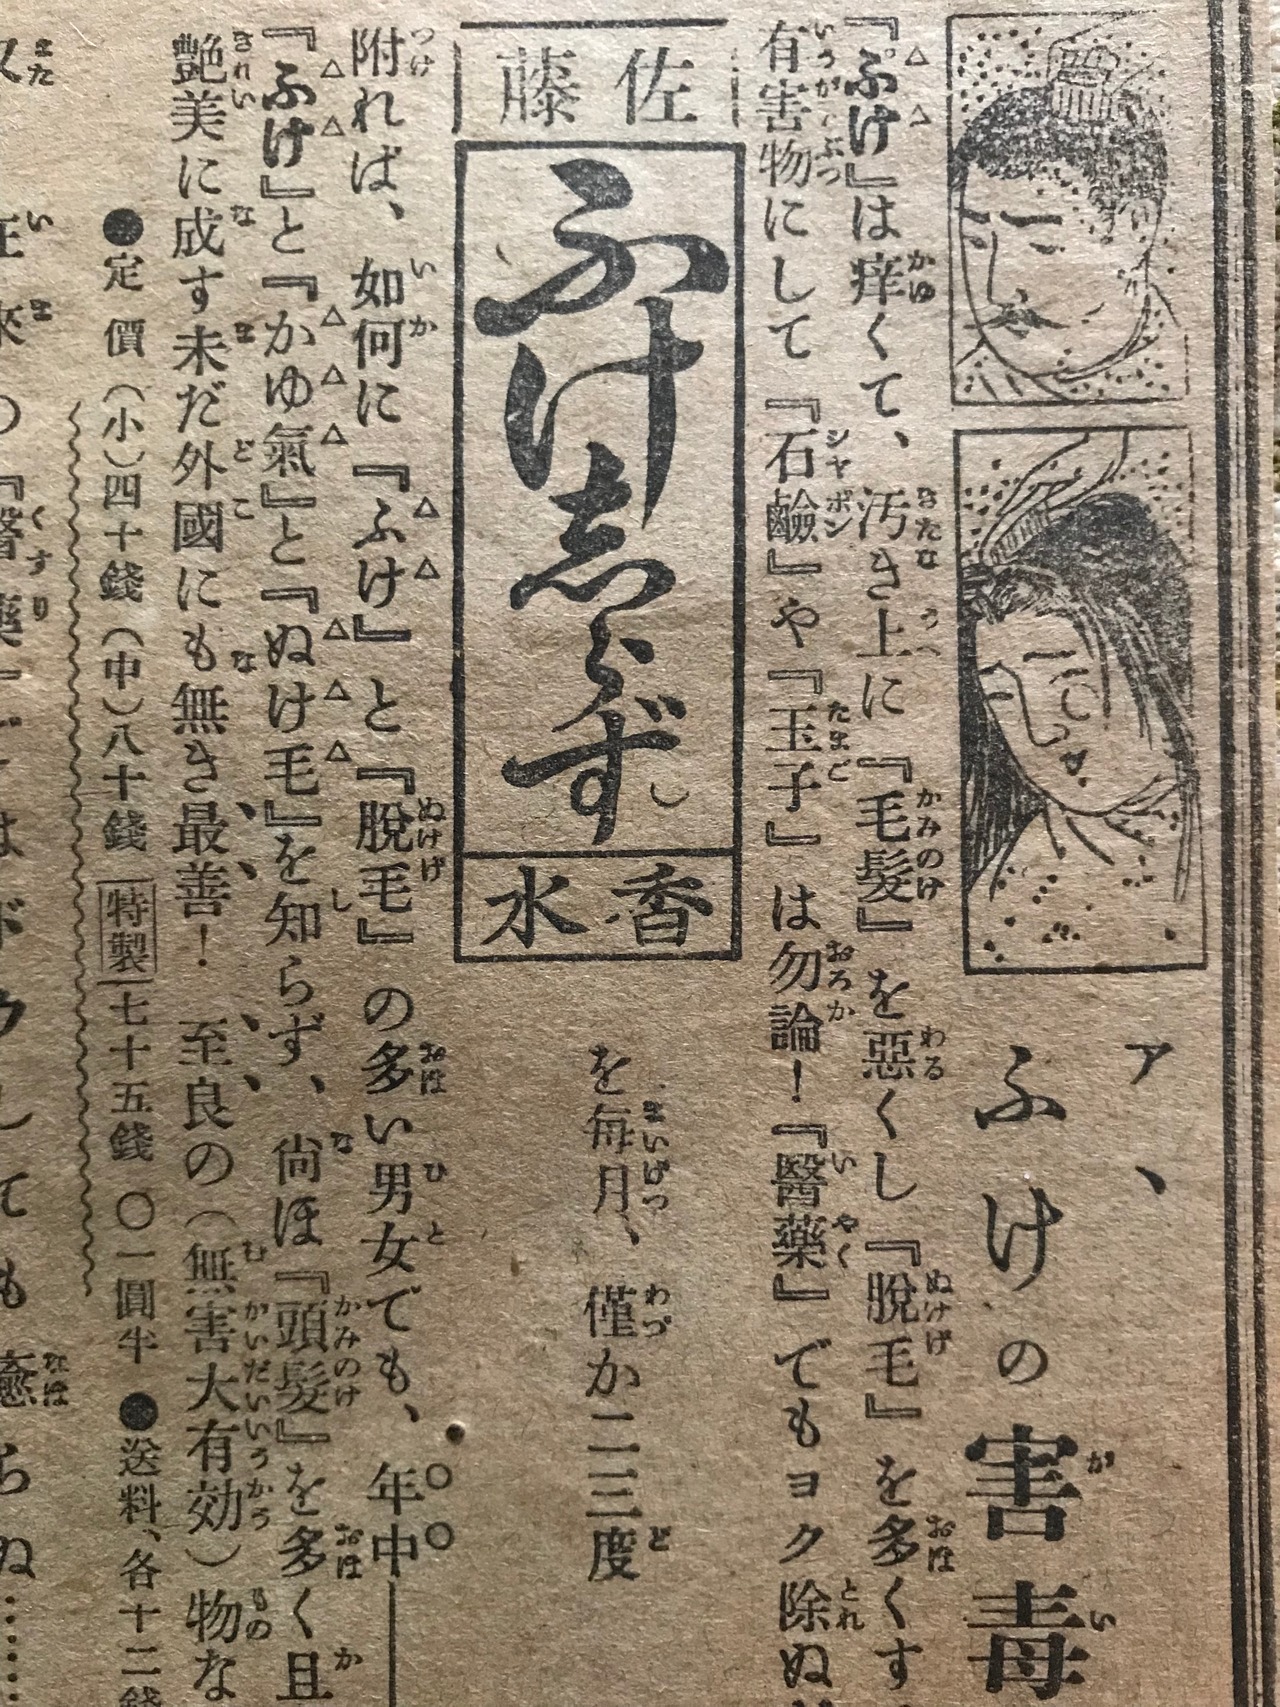 ア、
ふけの害毒
『ふけ』は痒くて、汚き上に『毛髮』を惡くし『脫毛』を多くす
有害物にして『石鹼』や『玉子』は勿論！『醫藥』でもヨク除ぬ
佐藤
ふけ志らず
香水
を毎月、僅か二三度
附れば、如何に『ふけ』と『脫毛』の多い男女でも、年中
『ふけ』と『かゆ氣』と『ぬけ毛』を知らず、尙ほ『頭髮』を多く且
艶美に成す未だ外國にも無き最善！至良の（無害大有効）物な
●定價（小）四十錢（中）八十錢 特製 七十五錢 〇一圓半 ●送料、各十二錢